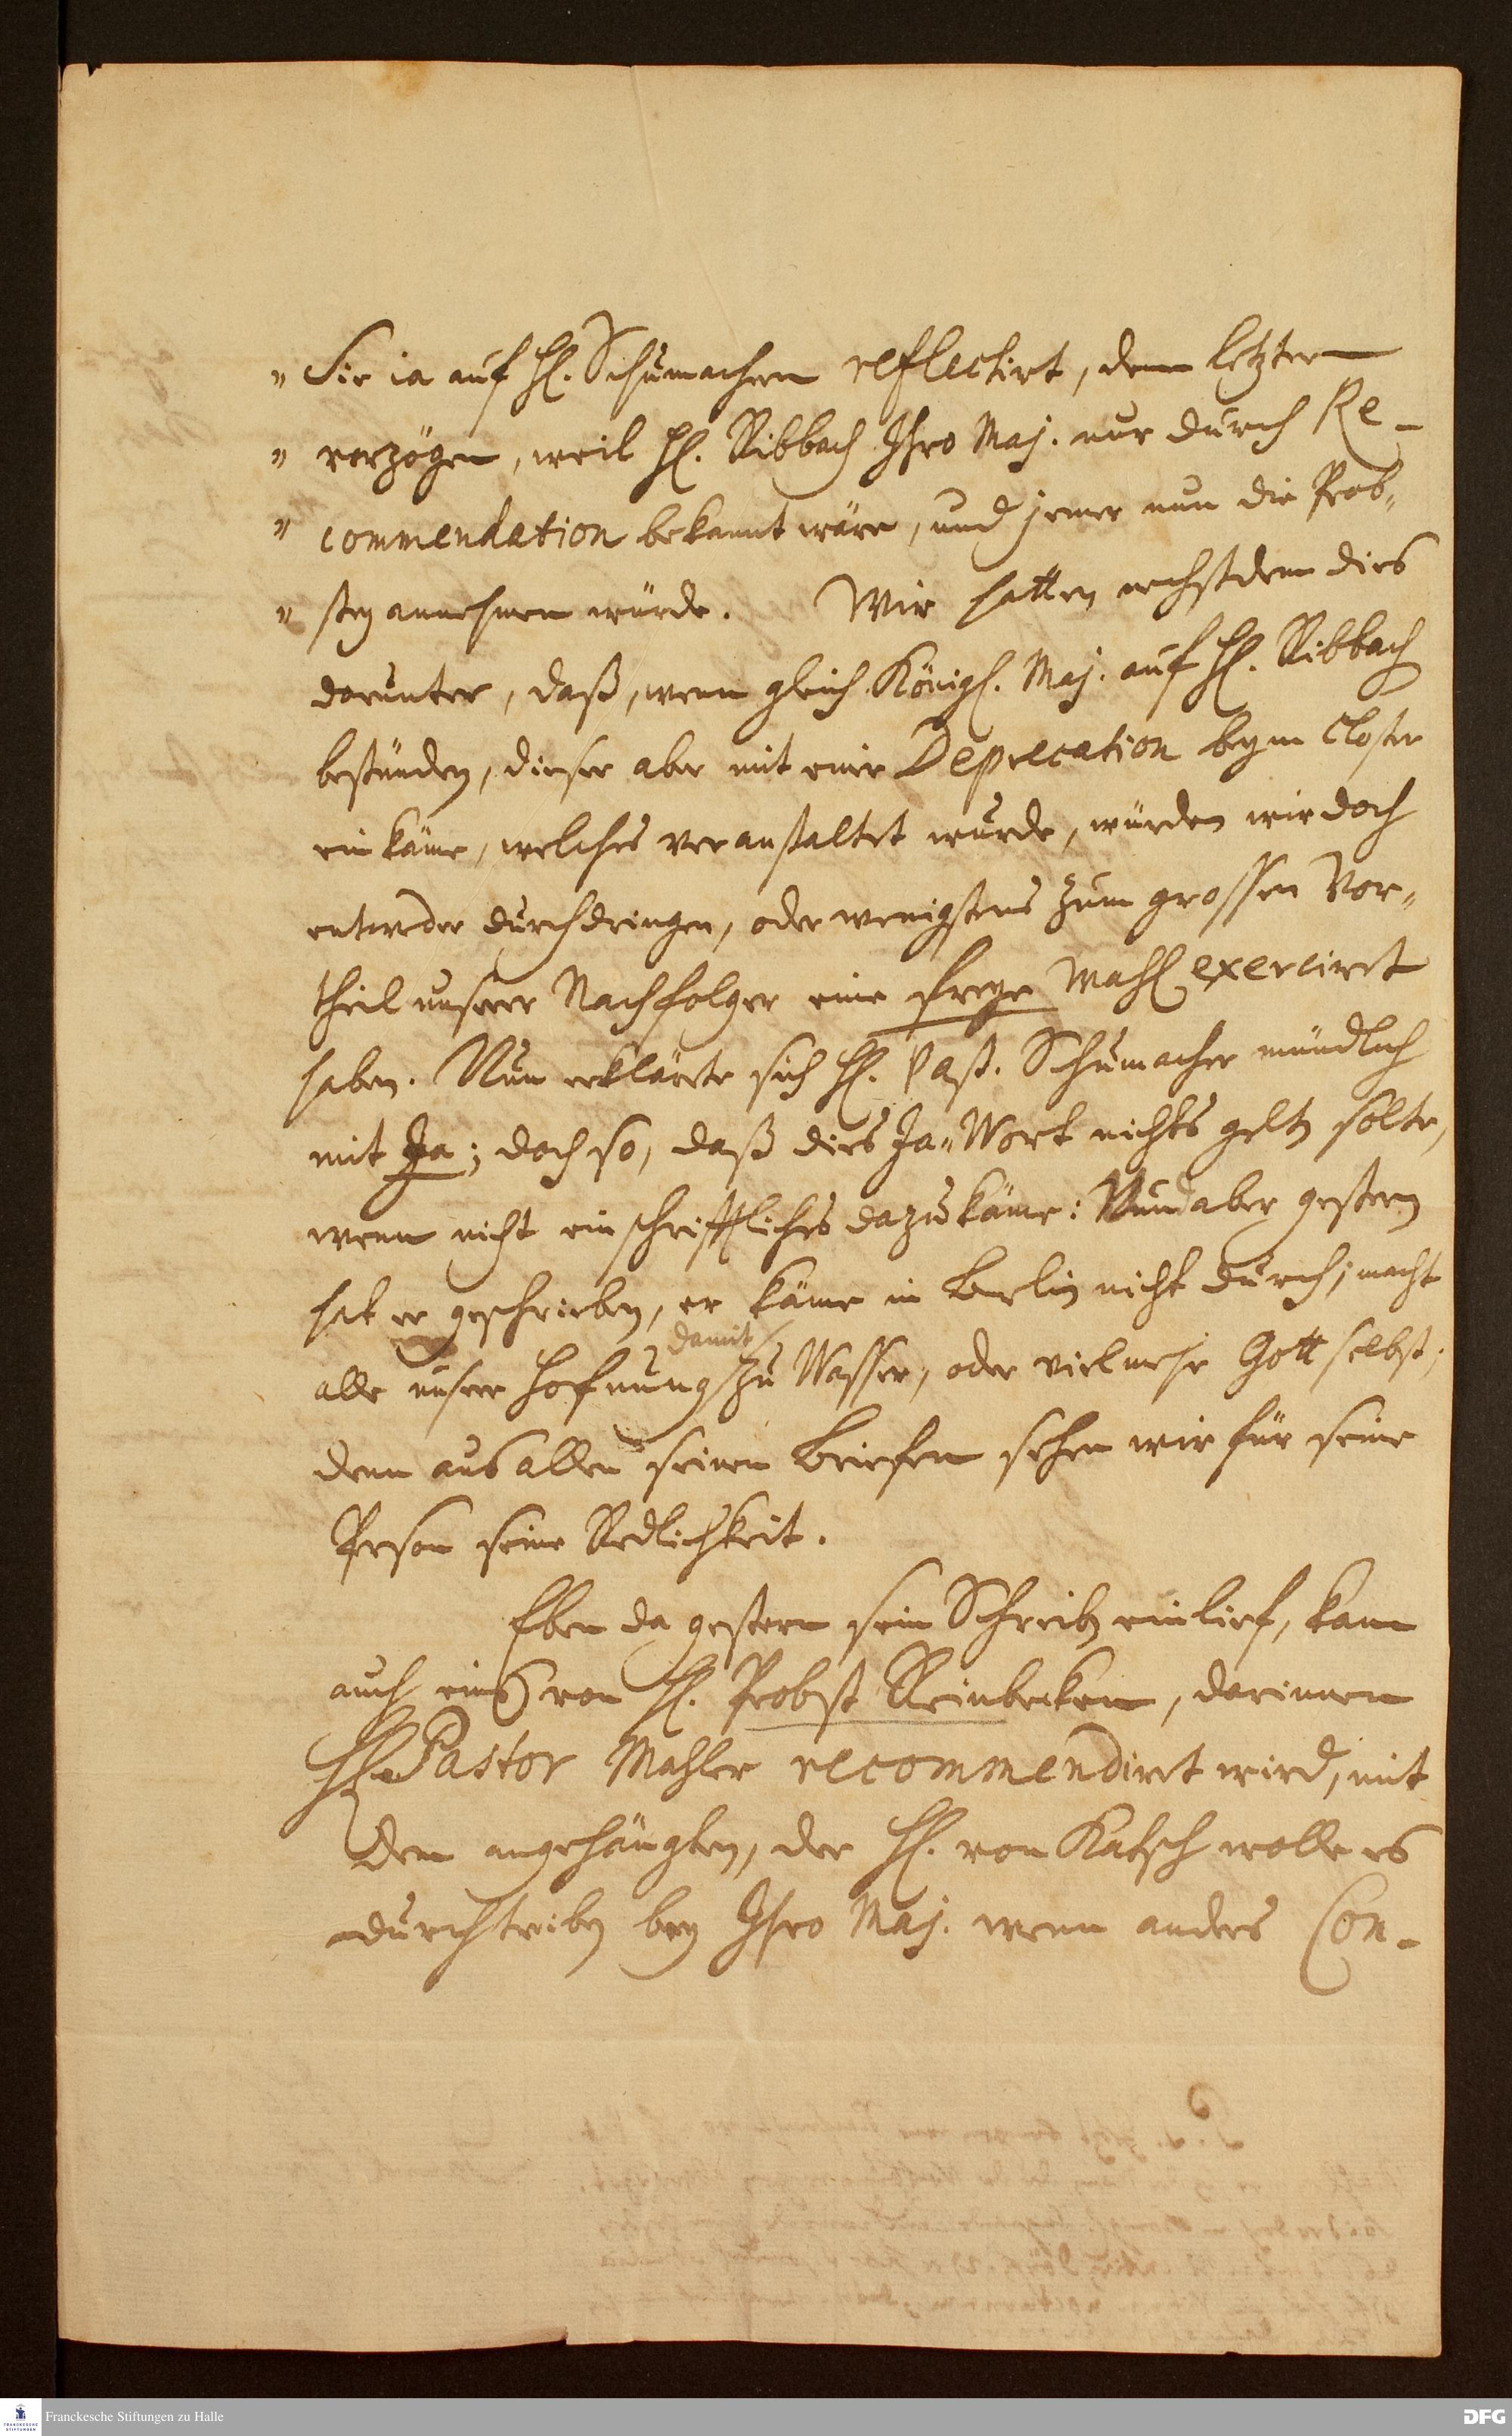 " Sie ia auf H. Schumachern reflectirt, dem letztern
" vorzögen, weil H. Ribbach Ihro Maj. nur durch Re-
" commendation bekannt wäre, und jener nun die Prob-
" stey annehmen würde. Wir hatten nechstdem dies
darunter, daß, wenn gleich Königl. Maj. auf H. Ribbach
bestünden, dieser aber mit einer Deprecation beym Closter
einkäme, welches veranstaltet wurde, würden wir doch
entweder durchdringen, oder wenigstens zum grossen Vor-
theil unserer Nachfolger eine freye Wahl exerciret
haben. Nun erklärte sich H. Past. Schumacher mündlich
mit Ja; doch so, daß dies Ja-Wort nichts gelten solte,
wenn nicht ein schrifftliches dazu käme: Und aber gestern
hat er geschrieben, er käme in Berlin nicht durch; macht
damit
alle unsere Hofnung zu Wasser, oder vielmehr Gott selbst;
denn aus allen seinen Briefen sehen wir für seine
Person seine Redlichkeit.
Eben da gestern sein Schreiben einlief, kam
auch eins von H. Probst Reinbecken, darinnen
H. Pastor Mahler recommendiret wird, mit
dem angehängten, der H. von Katsch wolle es
durchtreiben bey Ihro Maj. wenn anders Con-
Franckesche Stiftungen zu Halle
DFG